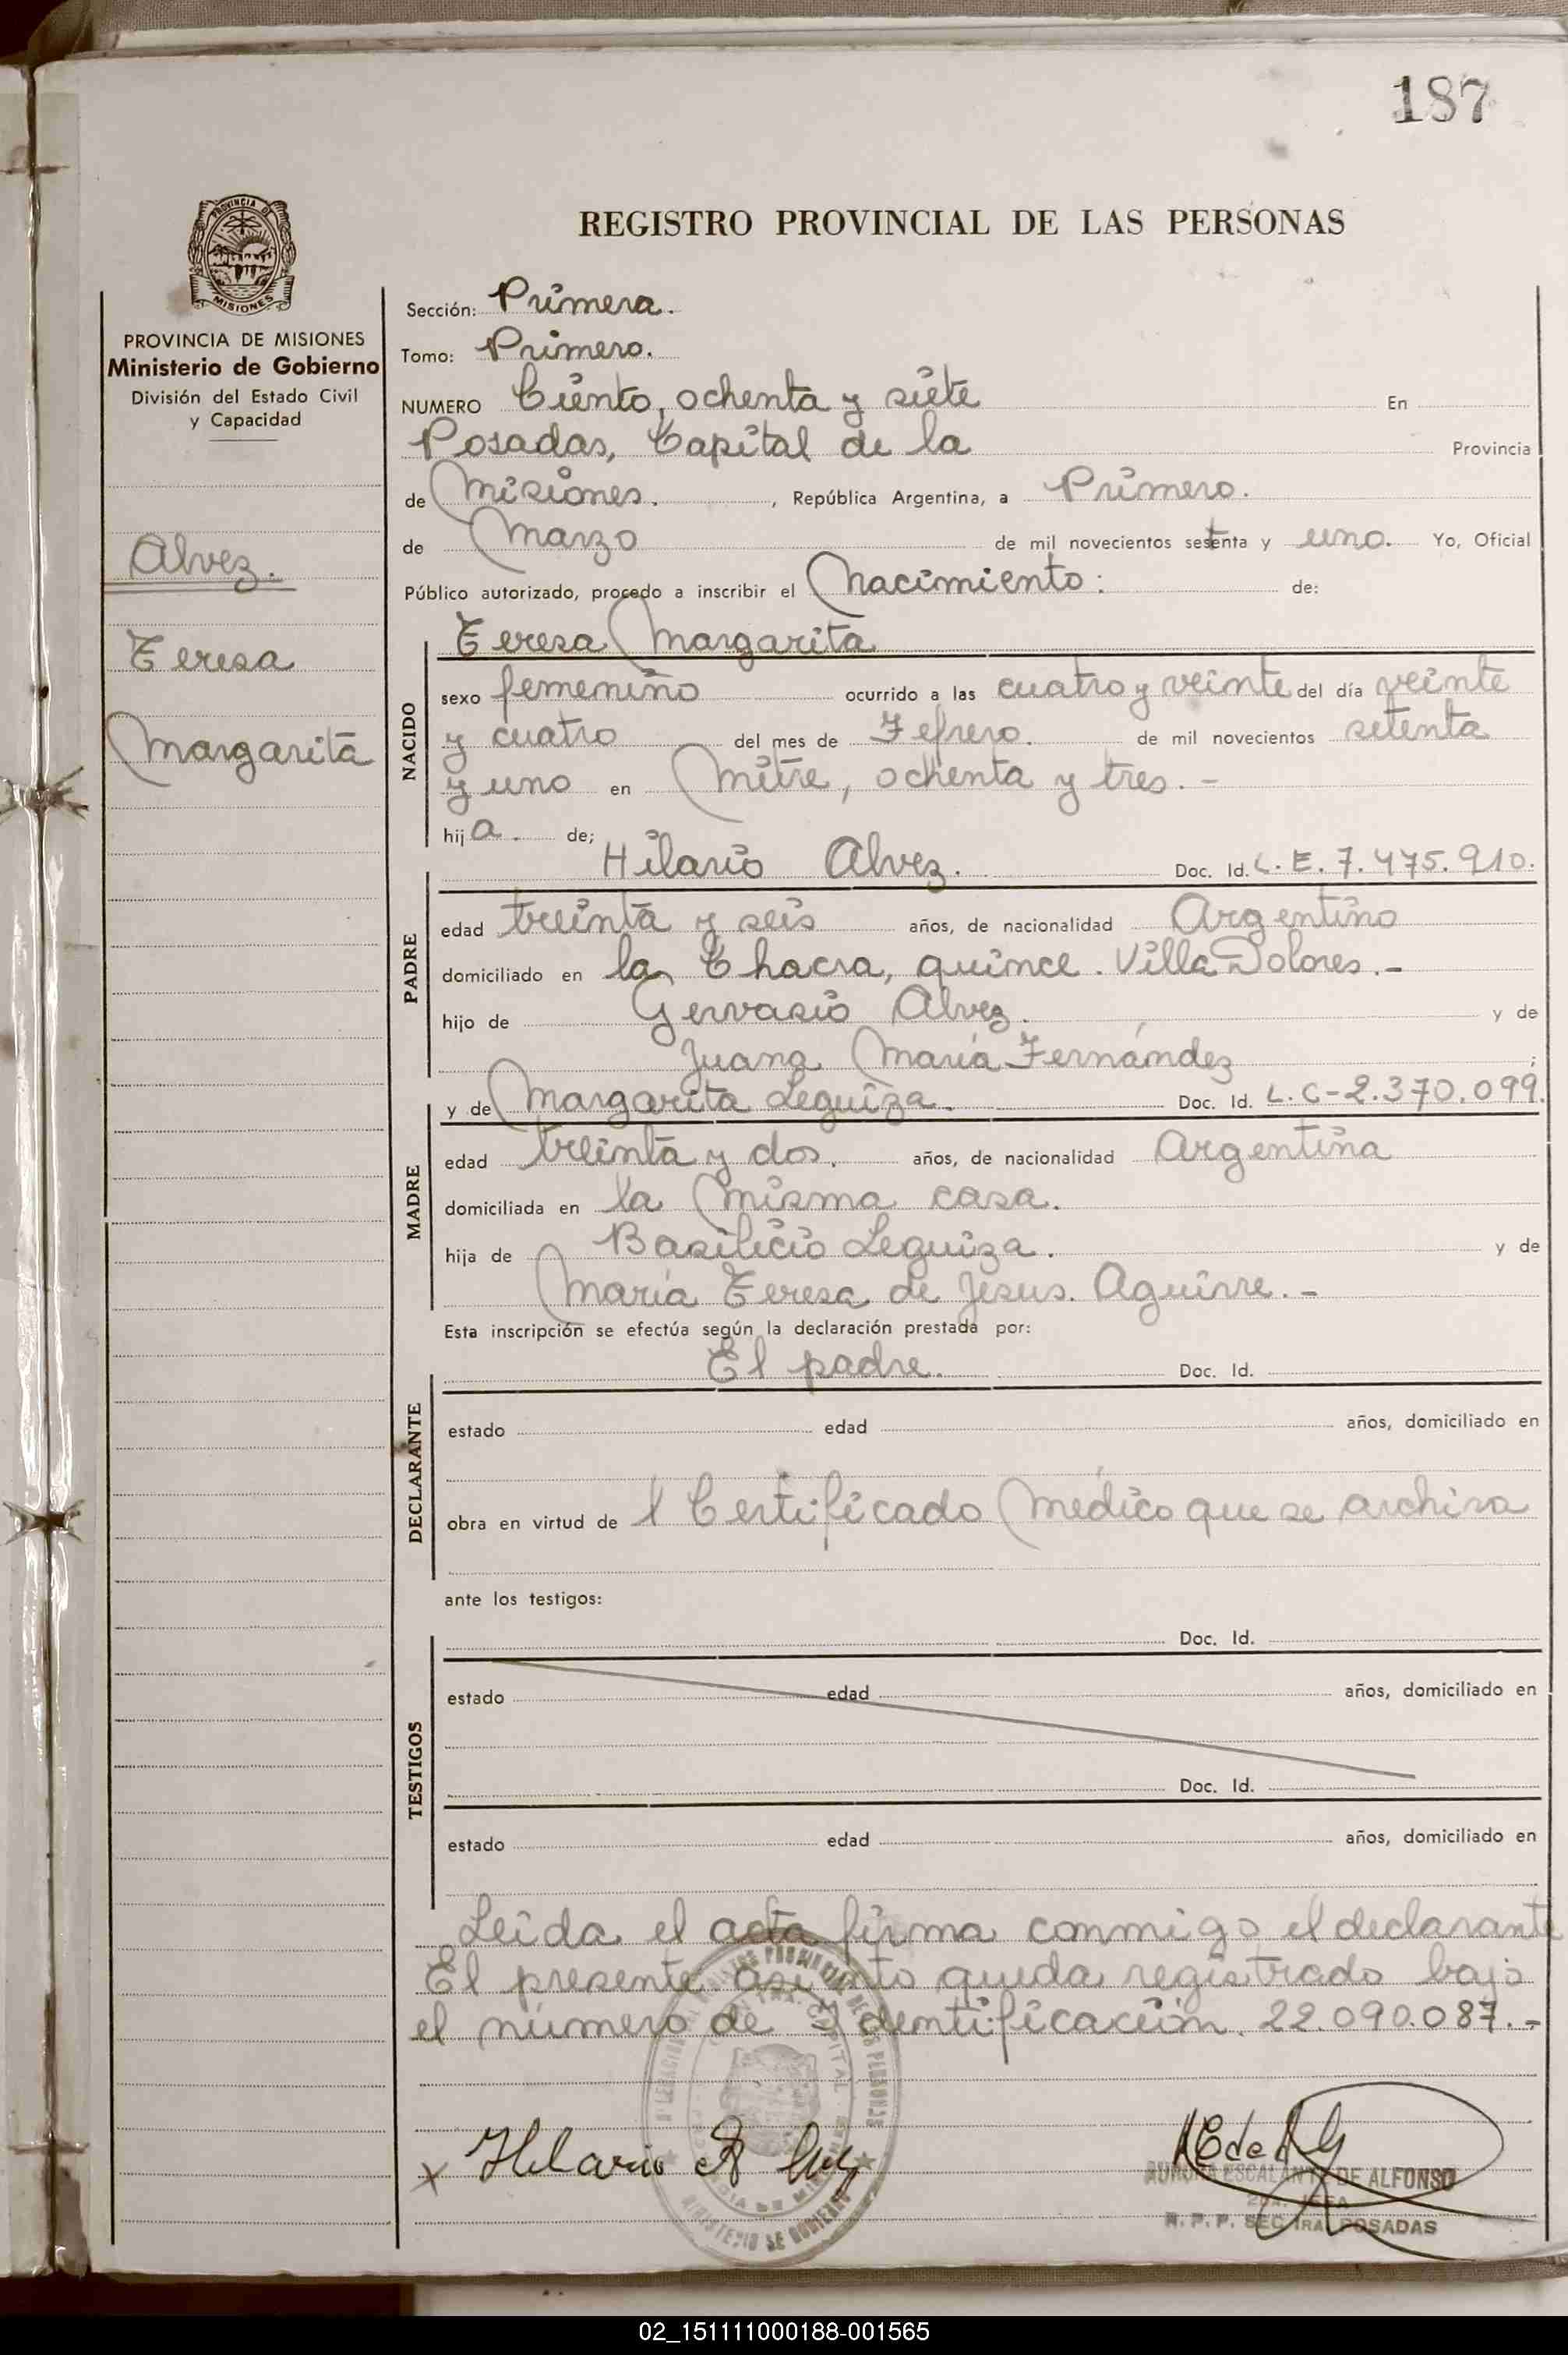 187
REGISTRO PROVINCIAL DE LAS PERSONAS
PROVINCIA DE
MISIONES
PROVINCIA DE MISIONES
Ministerio de Gobierno
División del Estado Civil
y Capacidad
Alvez.
Teresa
Margarita
Sección: Primera.
Tomo: Primero.
NUMERO Ciento, ochenta y siete En
Posadas, Capital de la Provincia
de Misiones. , República Argentina, a Primero.
de Marzo de mil novecientos setenta y uno. Yo, Oficial
Público autorizado, procedo a inscribir el Nacimiento: de:
NACIDO
Teresa Margarita
sexo femenino ocurrido a las cuatro y veinte del día veinte
y cuatro del mes de Fefrero. de mil novecientos setenta
y uno en Mitre, ochenta y tres.-
hija. de;
PADRE
Hilario Alvez. Doc. Id. L.E. 7.475.910.
edad treinta y seis años, de nacionalidad Argentino
domiciliado en la Chacra, quince. Villa Dolores.-
hijo de Gervasio Alvez. y de
Juana María Fernández ;
MADRE
y de Margarita Leguiza. Doc. Id. L.C-2.370.099.
edad treinta y dos. años, de nacionalidad Argentina
domiciliada en la misma casa.
hija de Basilicio Leguiza. y de
María Teresa de Jesus. Aguirre.-
Esta inscripción se efectúa según la declaración prestada por:
DECLARANTE
El padre. Doc. Id.
estado edad años, domiciliado en
obra en virtud de l Certificado Médico que se archiva
ante los testigos:
TESTIGOS
Doc. Id.
estado edad años, domiciliado en
Doc. Id.
estado edad años, domiciliado en
Leida el acta firma conmigo el declarante
El presente asiento queda registrado bajo
el número de Identificación. 22.090.087.-
x Hilario Alvez
AURORA ESCALANTE DE ALFONSO
2da. JEFA
R. P. P. SEC 1RA. POSADAS
02_151111000188-001565